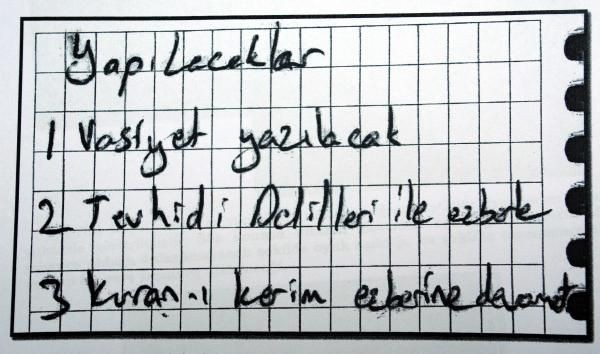 Yapılacaklar
1 Vasiyet yazılacak
2 Tevhidi Delilleri ile ezberle
3 Kuran-ı kerim ezberine devam et